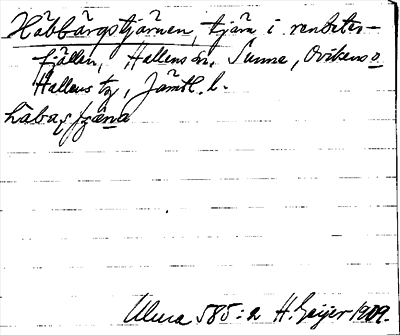 Håbbärgstjärnen, tjärn i renbetes-
fjällen, Hallens sn, Sunne, Ovikens o
Hallens tg, Jämtl. l.
Ulma 585:2 H. Geijer 1909.